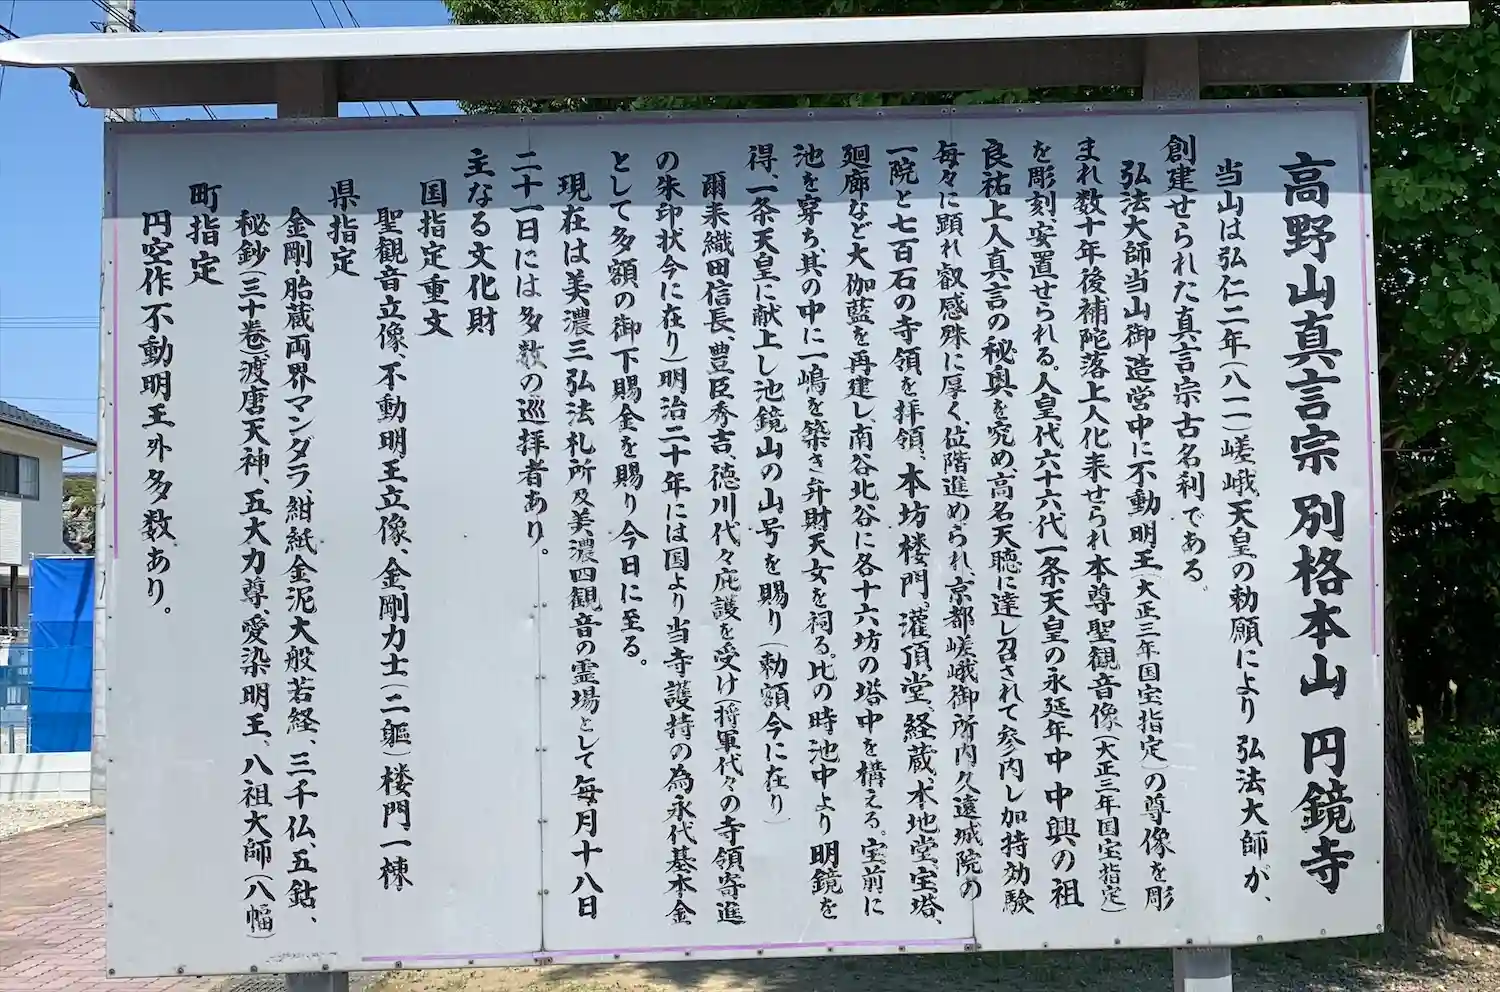 高野山真言宗 別格本山 円鏡寺
当山は弘仁二年(八一一)嵯峨天皇の勅願により弘法大師が、
創建せられた真言宗古名刹である。
弘法大師当山御造営中に不動明王(大正三年国宝指定)の尊像を彫
まれ数十年後補陀落上人化来せられ本尊聖観音像(大正三年国宝指定)
を彫刻、安置せられる。人皇代六十六代一条天皇の永延年中中興の祖
良祐上人真言の秘奥を究め、高名天聴に達し召されて参内し加持効験
毎々に顕れ叡感殊に厚く、位階進められ京都嵯峨御所内久遠城院の
一院と七百石の寺領を拝領、本坊楼門、灌頂堂、経蔵、本地堂、宝塔、
廻廊など大伽藍を再建し、南谷北谷に各十六坊の塔中を構える。宝前に
池を穿ち、其の中に一嶋を築き弁財天女を祠る。比の時池中より明鏡を
得、一条天皇に献上し池鏡山の山号を賜り(勅額今に在り)
爾来織田信長、豊臣秀吉、徳川代々庇護を受け(将軍代々の寺領寄進
の朱印状今に在り)明治二十年には国より当寺護持の為永代基本金
として多額の御下賜金を賜り今日に至る。
現在は美濃三弘法札所及美濃四観音の霊場として毎月十八日
二十一日には多数の巡拝者あり。
主なる文化財
国指定重文
聖観音立像、不動明王立像、金剛力士(二軀)楼門一棟
県指定
金剛・胎蔵両界マンダラ紺紙金泥大般若経、三千仏、五鈷、
秘鈔(三十巻)渡唐天神、五大力尊、愛染明王、八祖大師(八幅)
町指定
円空作不動明王外多数あり。